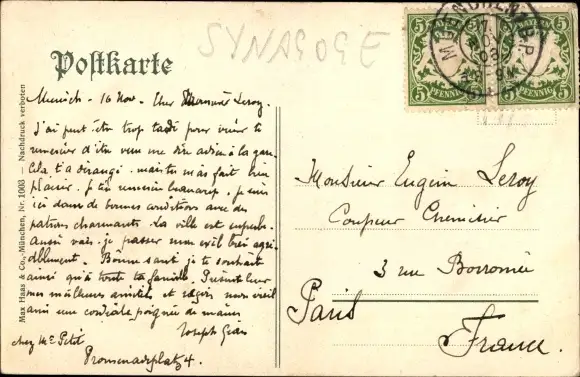 SYNAGOGE
Postkarte
MÜNCHEN
5 5 5 5
PFENNIG PFENNIG
Max Haas & Co., München, Nr. 1003 — Nachdruck verboten
Munich - 16 Nov. - Cher Monsieur Leroy.
J'ai peut être trop tardé pour venir te
remercier d'être venu me dire adieu à la gare
Cela t'a dérangé. mais tu m'as fait bien
plaisir. Je t'en remercie beaucoup. je suis
ici dans de bonnes conditions avec des
patrons charmants. La ville est superbe.
aussi vais-je passer mon exil très agré-
ablement. Bonne santé je te souhaite
ainsi qu'à toute ta famille. Présente leur
mes meilleurs amitiés et reçois mon vieil
ami une cordiale poignée de mains
Joseph
chez Mr Petit
Promenadeplatz 4.
Monsieur Eugène Leroy
Coupeur Chemisier
3 rue Borromée
Paris
France.